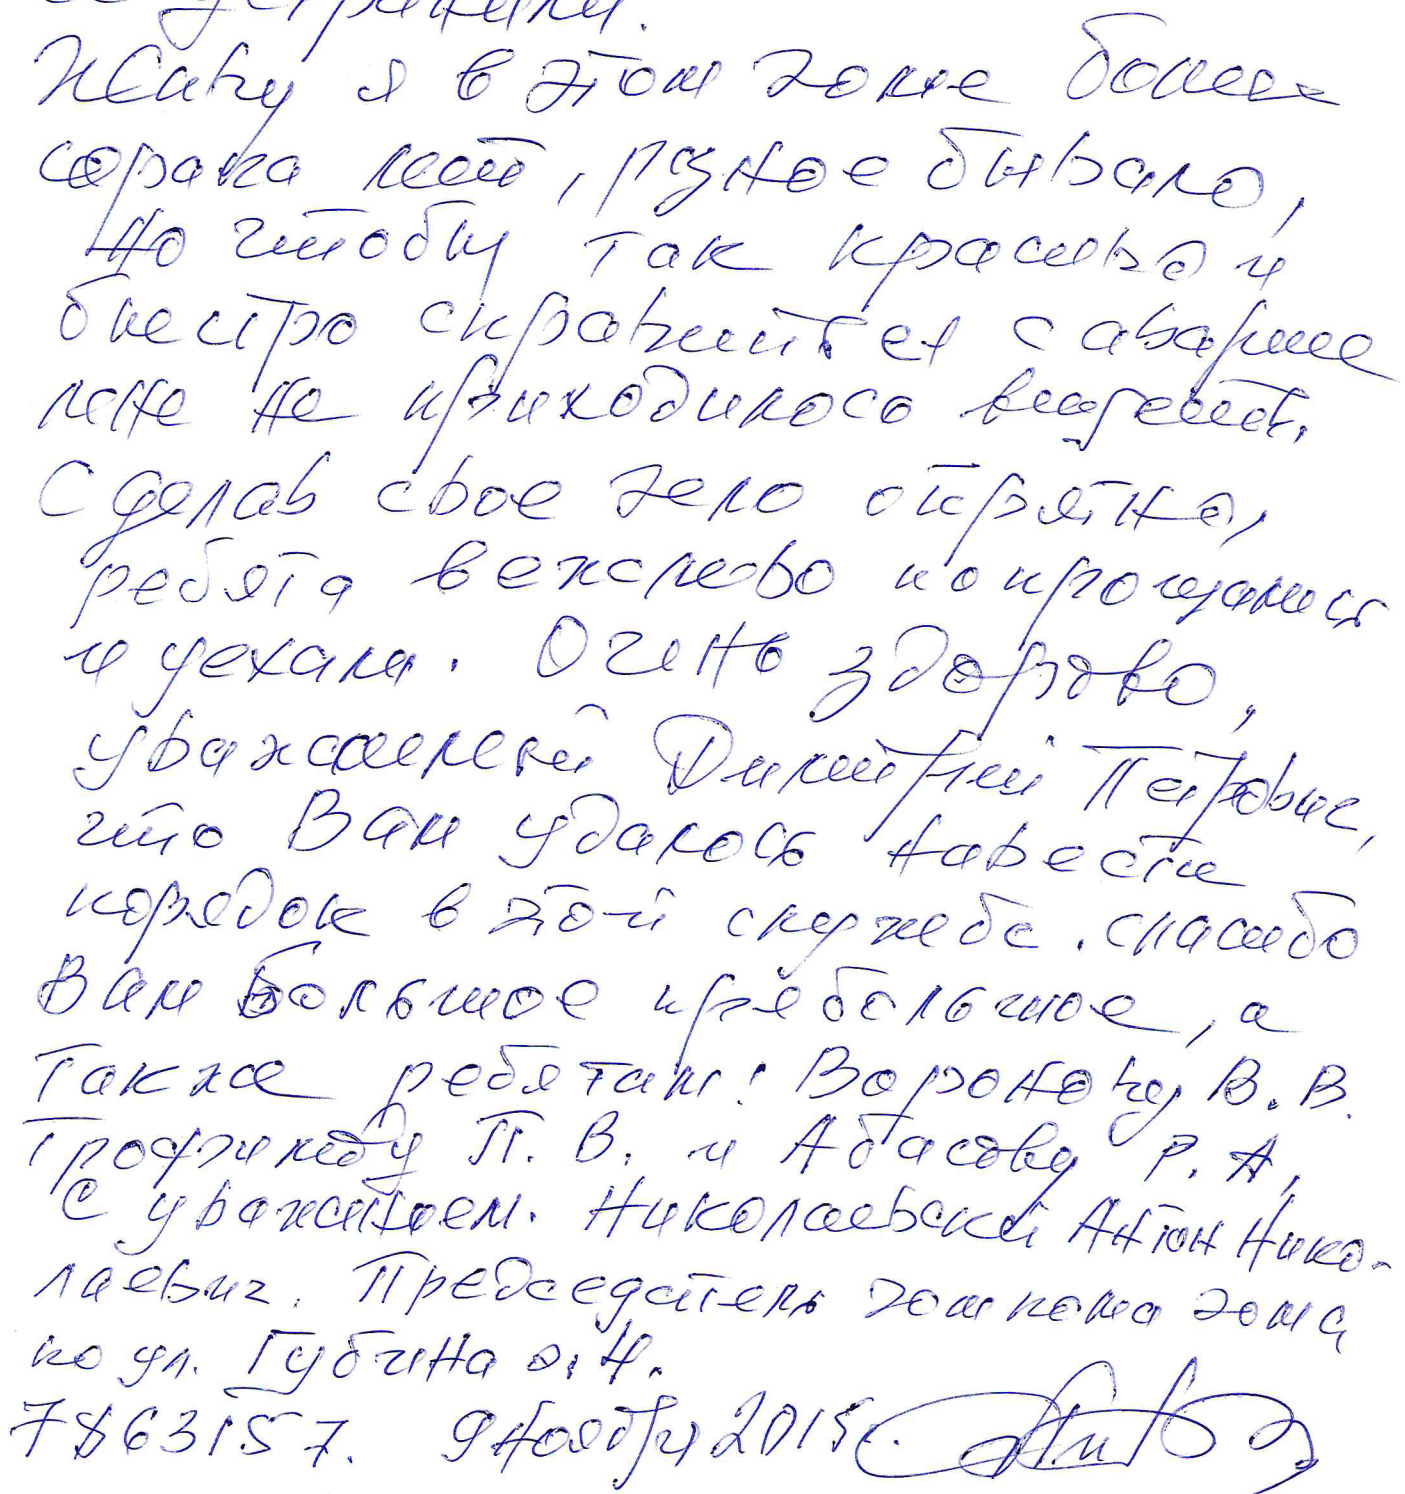 устранили.
Живу я в этом доме более
сорока лет, разное бывало,
но чтобы так красиво и
быстро справиться с аварией
мне не приходилось видеть.
Сделав свое дело опрятно,
ребята вежливо попрощались
и уехали. Очень здорово,
уважаемый Димитрий Петрович,
что Вам удалось навести
порядок в этой службе. спасибо
Вам Большое пребольшое, а
также ребятам: Воронову В. В.
Трофимову П. В. и Абасову Р. А.
С уважением. Николаевский Антон Нико-
лаевич. Председатель домкома дома
по ул. Губина д. 4.
7863157. 9 ноября 2015г.